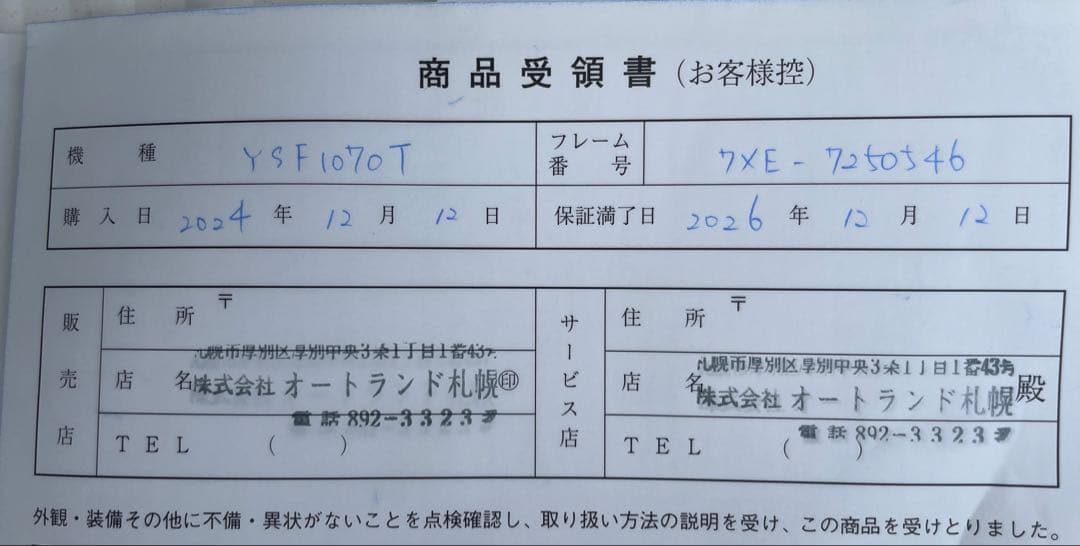 商品受領書(お客様控)
機種 YSF1070T フレーム番号 7XE-7250546
購入日 2024年12月12日 保証満了日 2026年12月12日
販売店 住所 〒
札幌市厚別区厚別中央3条1丁目1番43号
店名 株式会社 オートランド札幌 ㊞
電話 892-3323
TEL ( )
サービス店 住所 〒
札幌市厚別区厚別中央3条1丁目1番43号
店名 株式会社 オートランド札幌 殿
電話 892-3323
TEL ( )
外観・装備その他に不備・異状がないことを点検確認し、取り扱い方法の説明を受け、この商品を受けとりました。